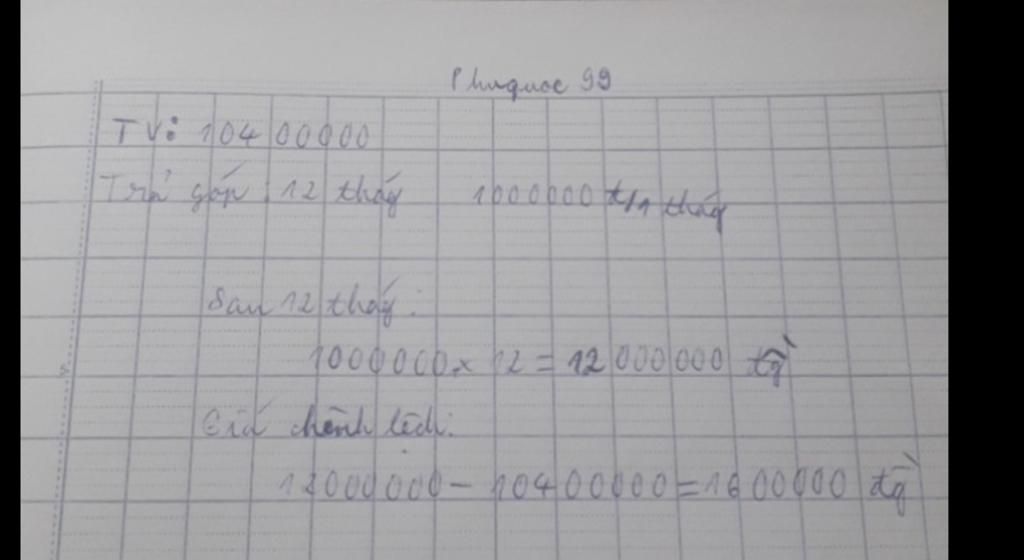 Phuquoc 99
TV: 10400000
Trả góp: 12 thág 1000000 đ/1 thág
Sau 12 thág:
1000000 x 12 = 12000000 đg̀
Giá chênh lệch:
12000000 - 10400000 = 1600000 đg̀